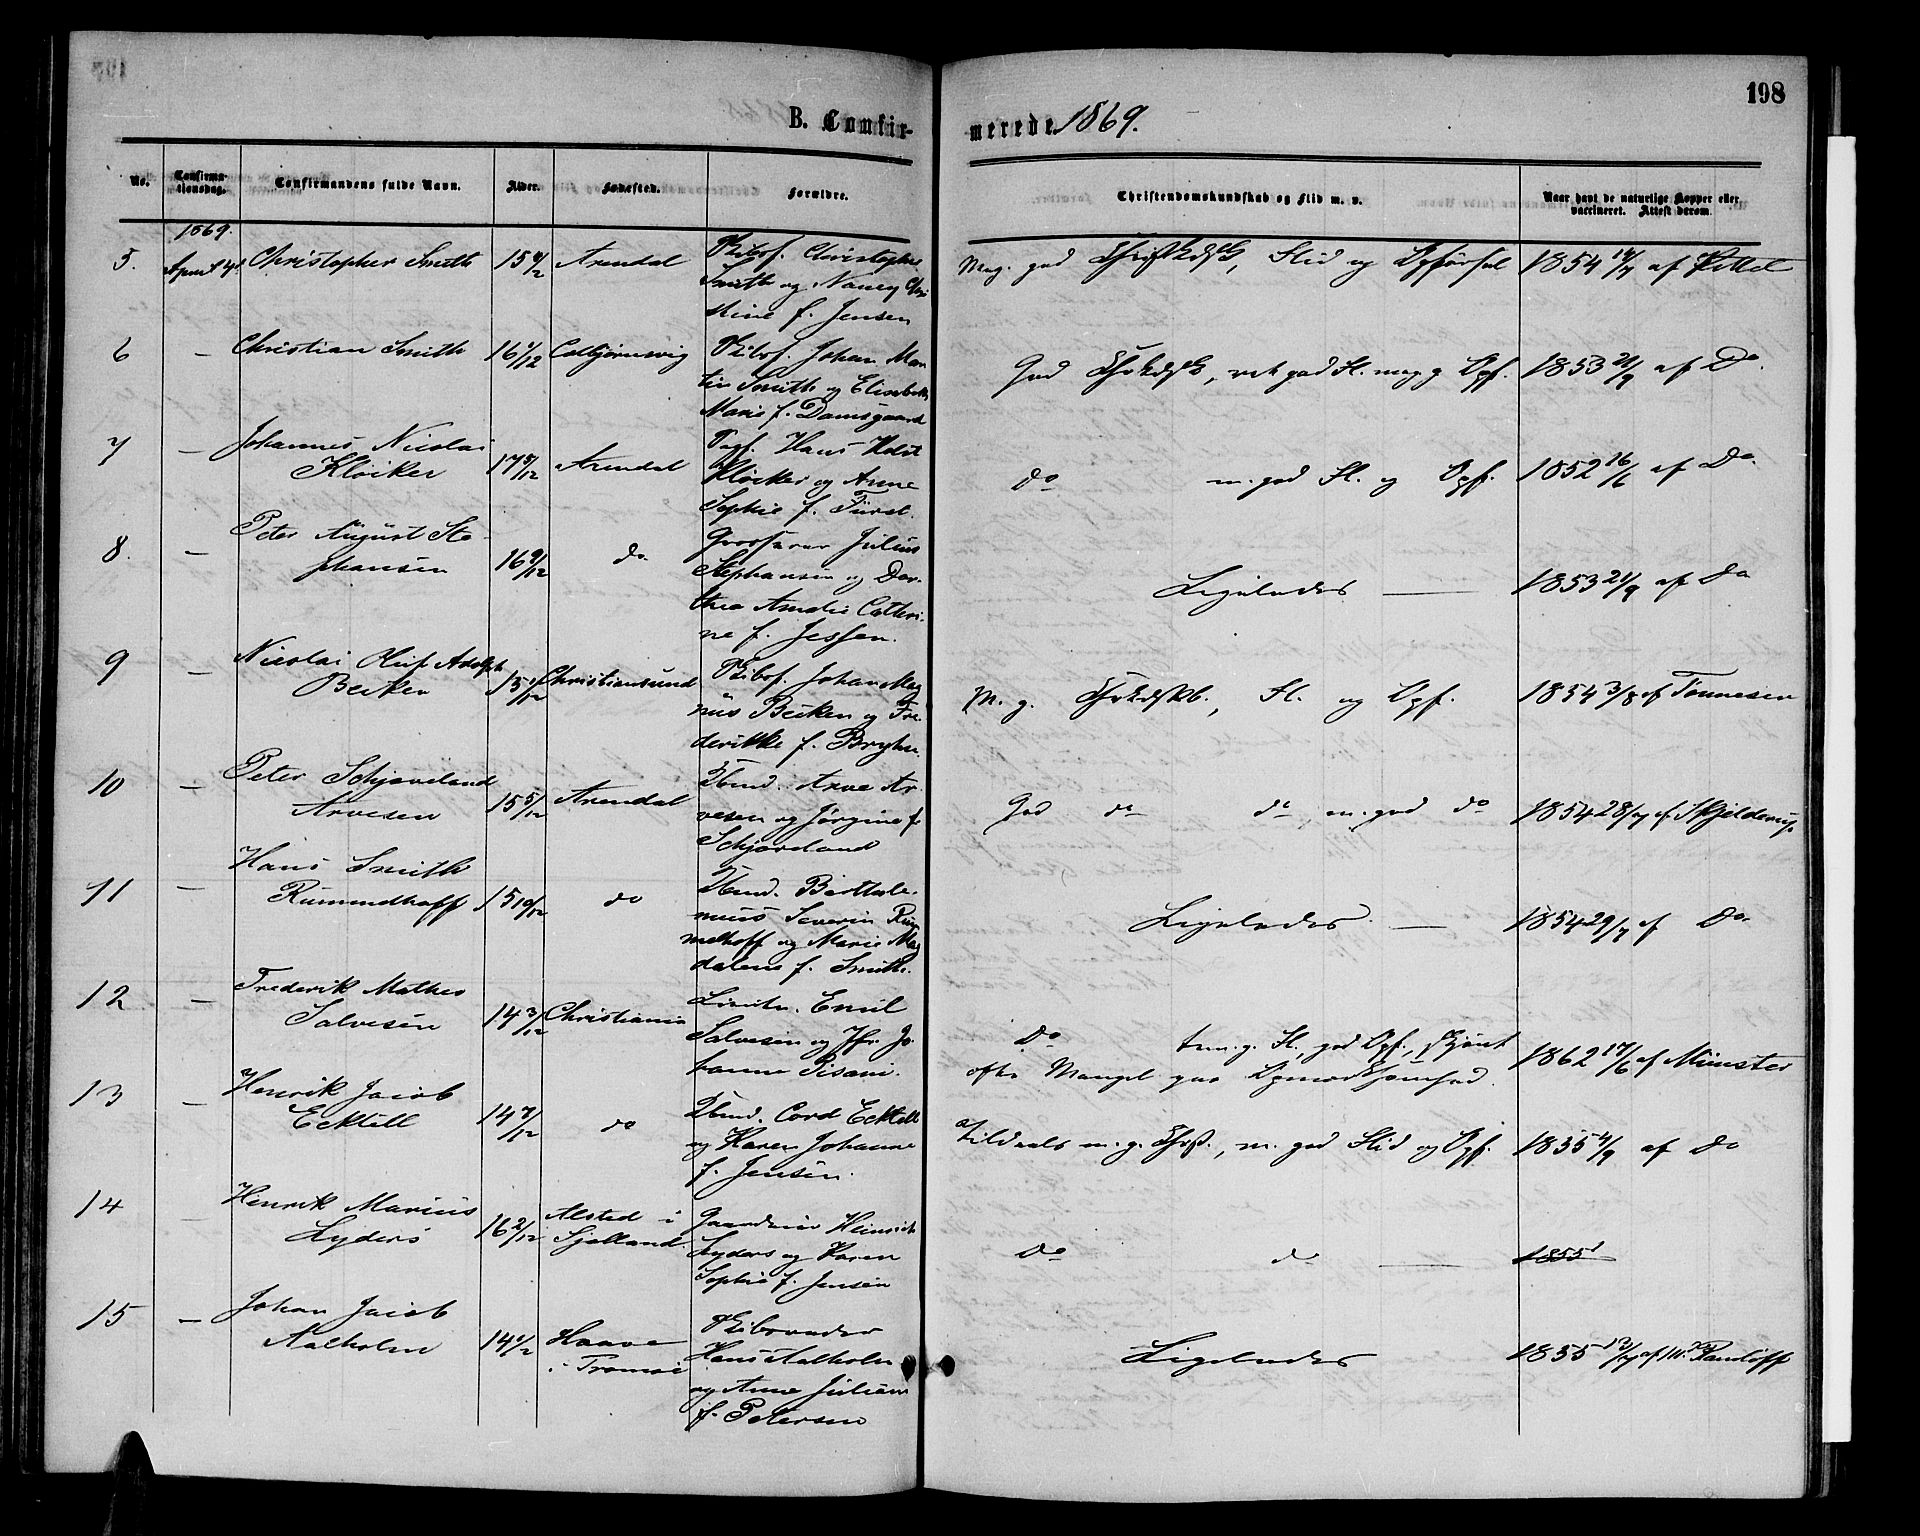 198
B. Confir-
merede 1869.
No.
Confirma-
tionsdag.
Confirmandens fulde Navn.
Alder.
Fødested.
Forældre.
Christendomskundskab og Flid m. v.
Naar havt de naturlige Kopper eller
vaccineret. Attest derom.
1869.
5. April 4 Christopher Smith 15 1/2 Arendal Skibsf. Christopher
Smith og Nancy Chri
stine f. Jensen
Meg. god Flid og Opførsel 1854 af Kittel
6 — Christian Smith 16 1/12 Colbjørnsvig Skibsf. Johan Mar
tin Smith og Elisabeth
Marie f. Damsgaard
God Fl. Opf. 1853 21/9 af Do
7 — Johannes Nicolai
Kløcker 17 5/12 Arendal Hans Holst
Kløcker og Anne
Sophie f. Fürst.
do m. god Fl. og Opf. 1852 16/6 af Do
8. — Peter August Ste
phansen 16 9/12 do Grosserer Julius
Stephansen og Dor-
thea Amalie Catheri-
ne f. Jessen.
Ligeledes — 1853 21/9 af Do
9 — Nicolai Oluf Adolph
Becker Christiansund Skibsf. Johan Mag
nus Becker og Fre
derikke f. Bryhn.
M. g. Fl. og Opf. 1854 3/8 af Tønnesen
10 — Peter Schjæveland
Arvesen 15 5/12 Arendal Arve Ar
vesen og Jørgine f.
Schjæveland
God do do m. god do 1854 28/7 af Skjelderup
11 — Hans Smith
Rummelhoff 15 10/12 do Bertole-
mæus Severin Rum
melhoff og Marie Mag
dalene f. Smith.
Ligeledes — 1854 29/7 af Do
12 — Frederik Mathes
Salvesen 14 3/12 Christiania Emil
Salvesen og Jfr. Jo
hanne Pisani.
Do god Opf., skjønt
ofte Mangel paa Opmærksomhed. 1862 17/6 af Münster
13 — Henrik Jacob
Ecktell 14 7/12 do Cord Ecktell
og Karen Johanne
f. Jensen.
Tildeels m. g. m. god Flid og Opf. 1855 4/9 af Do
14 — Henrik Marius
Lyders 16 2/12 Alsted i
Sjælland. Gaardeier Heinrich
Lyders og Karen
Sophie f. Jensen
Do do — 1855
15 — Johan Jacob
Aalholm 14 1/2 Haave
i Tromøe Hans Aalholm
og Anne Juliane
f. Petersen
Ligeledes 1855 13/7 af